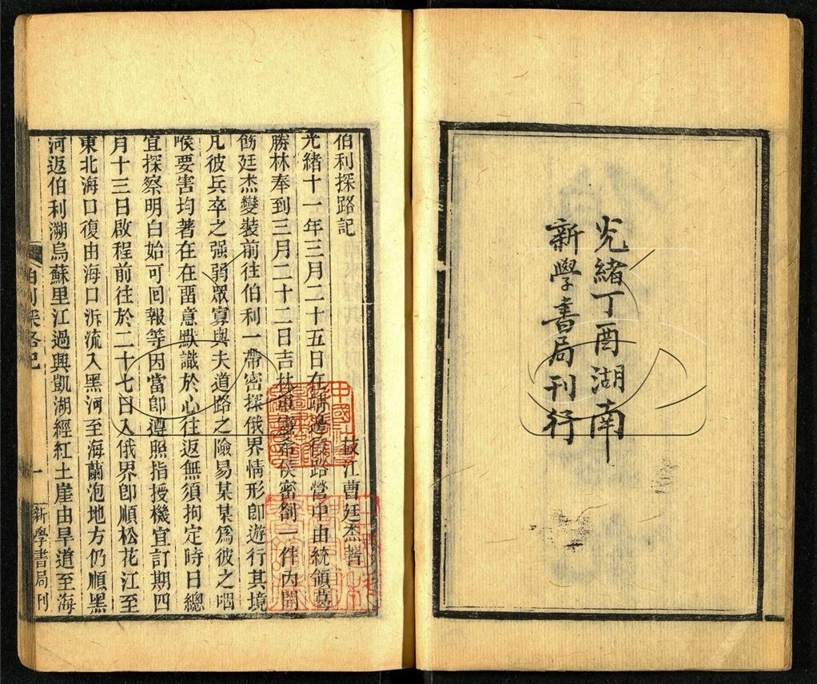 光緒丁酉湖南
新學書局刊行
伯利探路記
枝江曹廷杰著
光緒十一年三月二十五日在靖邊後路營中由統領葛
勝林奉到三月二十二日吉林軍憲希侯密劄一件內開
飭廷杰變裝前往伯利一帶密探俄界情形卽遊行其境
凡彼兵卒之强弱眾寡與夫道路之險易某某爲彼之咽
喉要害均著在在畱意默識於心往返無須拘定時日總
宜探察明白始可回報等因當卽遵照指授機宜訂期四
月十三日啟程前往於二十七日入俄界卽順松花江至
東北海口復由海口泝流入黑河至海蘭泡地方仍順黑
河返伯利溯烏蘇里江過興凱湖經紅土崖由旱道至海
伯利探路記
一
新學書局刊